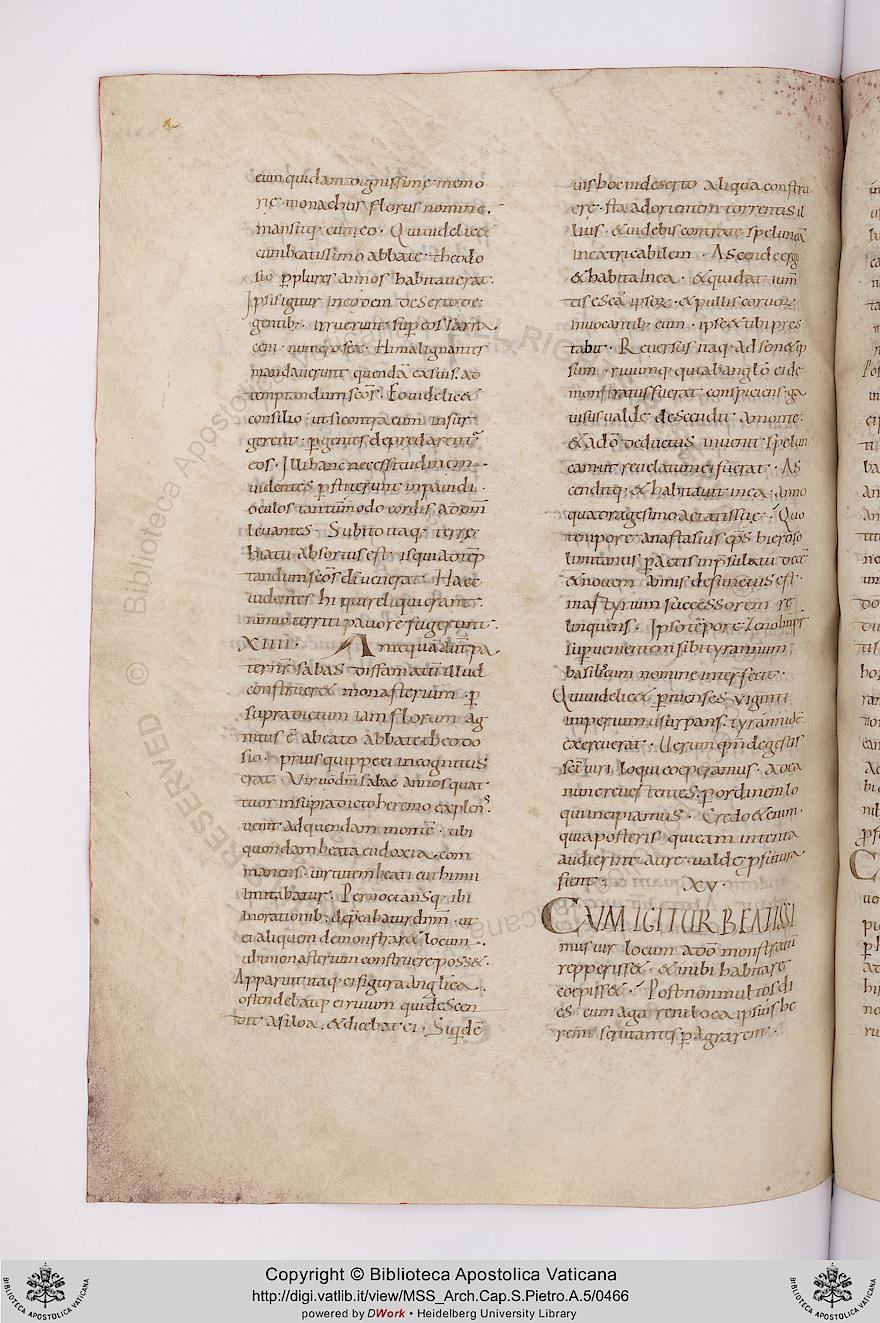 cum quidam dignissimę memo
rię monachus florus nomine.
mansitq; cum eo. Qui uidelic&
cum beatissimo abbate theodo
sio p plures annos habitauerat.
Ipsis igitur in eodem deserto de
gentib; irruerunt sup eos sarra
ceni numero sex. Hi malignantes
mandauerunt quendā ex suis ad
temptandum scōs. Eo uidelic&
consilio ut si contra eum insur
gerent pgentes depredarent
eos. Illi hanc necessitudinem
uidentes pstiterunt inpauidi.
oculos tantūmodo cordis ad dnm
leuantes. Subito itaq; terrę
hiatu absortus est is qui ad tēp
tandum scōs dī uenerat. Haec
uidentes hi qui reliqui erant.
nimio territi pauore fugerunt.
XIIII. Antequā aut pa
ternr sabas diffamatū illud
construer& monasterium p
supradictum iam florum ag
nitus ē a beato abbate theodo
sio. prius quippe ei incognitus
erat. Vir uō dni sabas annos quat
tuor in supradicto heremo explens.
uenit ad quendam montē ubi
quondam beata eudoxia com
manens uirtutem beati euthimii
imitabatur. Pernoctansq; ibi
in orationib; depcabatur dnm ut
ei aliquem demonstrar& locum
ubi monasterium construere poss&.
Apparuit itaq; ei figura anglica.
ostendebatq; ei riuum qui descen
dit a siloa. & dicebat ei. Siqdē
uis hoc in deserto aliqua constru
ere sta ad orientem torrentis il
lius. & uidebis contra te speluncā
inextricabilem. Ascende ergo
& habita in ea. & qui dat ium
tis escā ipsoꝝ & pullis coruoꝝ
inuocantib; eum ipse & tibi pres
tabit. Reuersus itaq; ad sen& ip
sum riuumq; qui ab anglō ei de
monstratus fuerat conspiciens ga
uisus ualde descendit a monte.
& a dō deductus inuenit spelun
cam ut reuelatum ei fuerat. As
cenditq; & habitauit in ea anno
quadragesimo aetatis suę. Quo
tempore anastasius eps hieroso
limitanus pactis in psulatu decē
& nouem annis defunctus est.
martyrium successorem re
linquens. Ipso tēpore Zeno impr
superuenientem sibi tyrannum
basiliscum nomine interfecit.
Qui uidelic& p menses uiginti
imperium usurpans tyrannidē
exercuerat. Uerum qm de gestis
scī uiri loqui coeperamus. ad ea
nunc reuertentes. p ordinem lo
qui incipiamus. Credo &enim
quia posteris qui eam intenta
audierint aure ualde psutura
sient; XV.
CVM IGITUR BEATISSI
mus uir locum a dō monstratū
repperiss& & in ibi habitare
coepiss&. Post non multos di
es cum aga reni loca ipsius he
remi scrutantes pagrarent.
Copyright © Biblioteca Apostolica Vaticana
http://digi.vatlib.it/view/MSS_Arch.Cap.S.Pietro.A.5/0466
powered by DWork • Heidelberg University Library